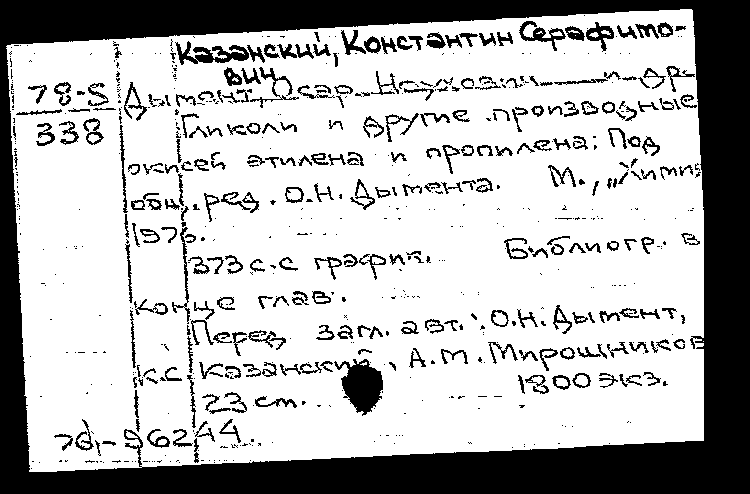 Казанский, Константин Серафимо-
вич
78-5 Дымент, Осар Ноухович и др.
338 Гликоли и другие производные
окисей этилена и пропилена; Под
общ. ред. О.Н. Дымента. М., „Химия
1976.
373 с. с график. Библиогр. в
конце глав.
Перед загл. авт.: О.Н. Дымент,
К.С. Казанский, А.М. Мирошников
23 см. 1800 экз.
76-96244.